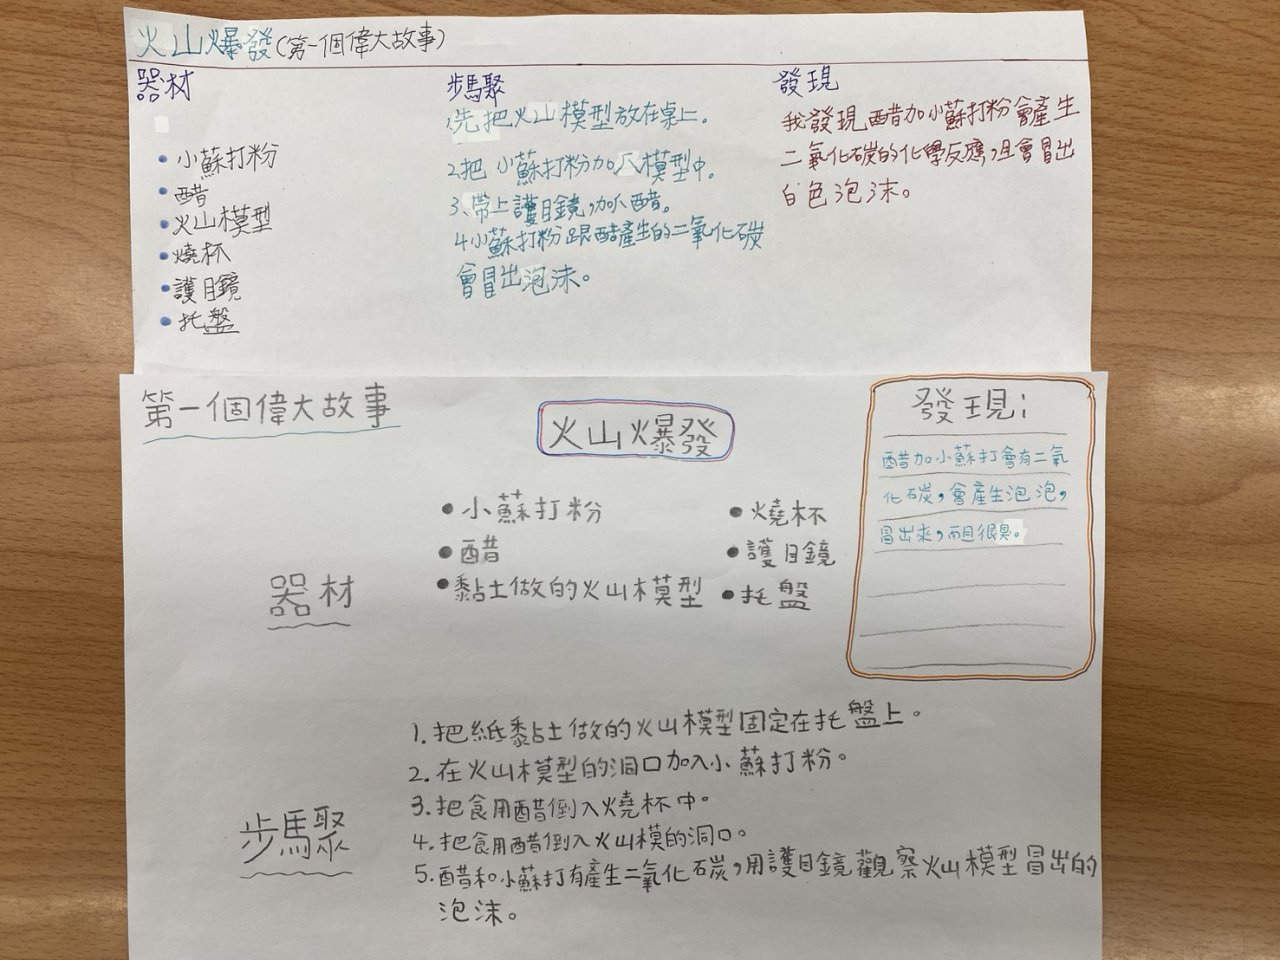 火山爆發(第一個偉大故事)
器材
• 小蘇打粉
• 醋
• 火山模型
• 燒杯
• 護目鏡
• 托盤
步驟
1.先把火山模型放在桌上。
2.把小蘇打粉加入模型中。
3、帶上護目鏡,加入醋。
4.小蘇打粉跟醋產生的二氧化碳
會冒出泡沫。
發現
我發現醋加小蘇打粉會產生
二氧化碳的化學反應,且會冒出
白色泡沫。
第一個偉大故事
火山爆發
發現:
醋加小蘇打會有二氧
化碳,會產生泡泡,
冒出來,而且很臭。
器材
• 小蘇打粉
• 醋
• 黏土做的火山模型
• 燒杯
• 護目鏡
• 托盤
步驟
1.把紙黏土做的火山模型固定在托盤上。
2.在火山模型的洞口加入小蘇打粉。
3.把食用醋倒入燒杯中。
4.把食用醋倒入火山模的洞口。
5.醋和小蘇打有產生二氧化碳,用護目鏡觀察火山模型冒出的
泡沫。